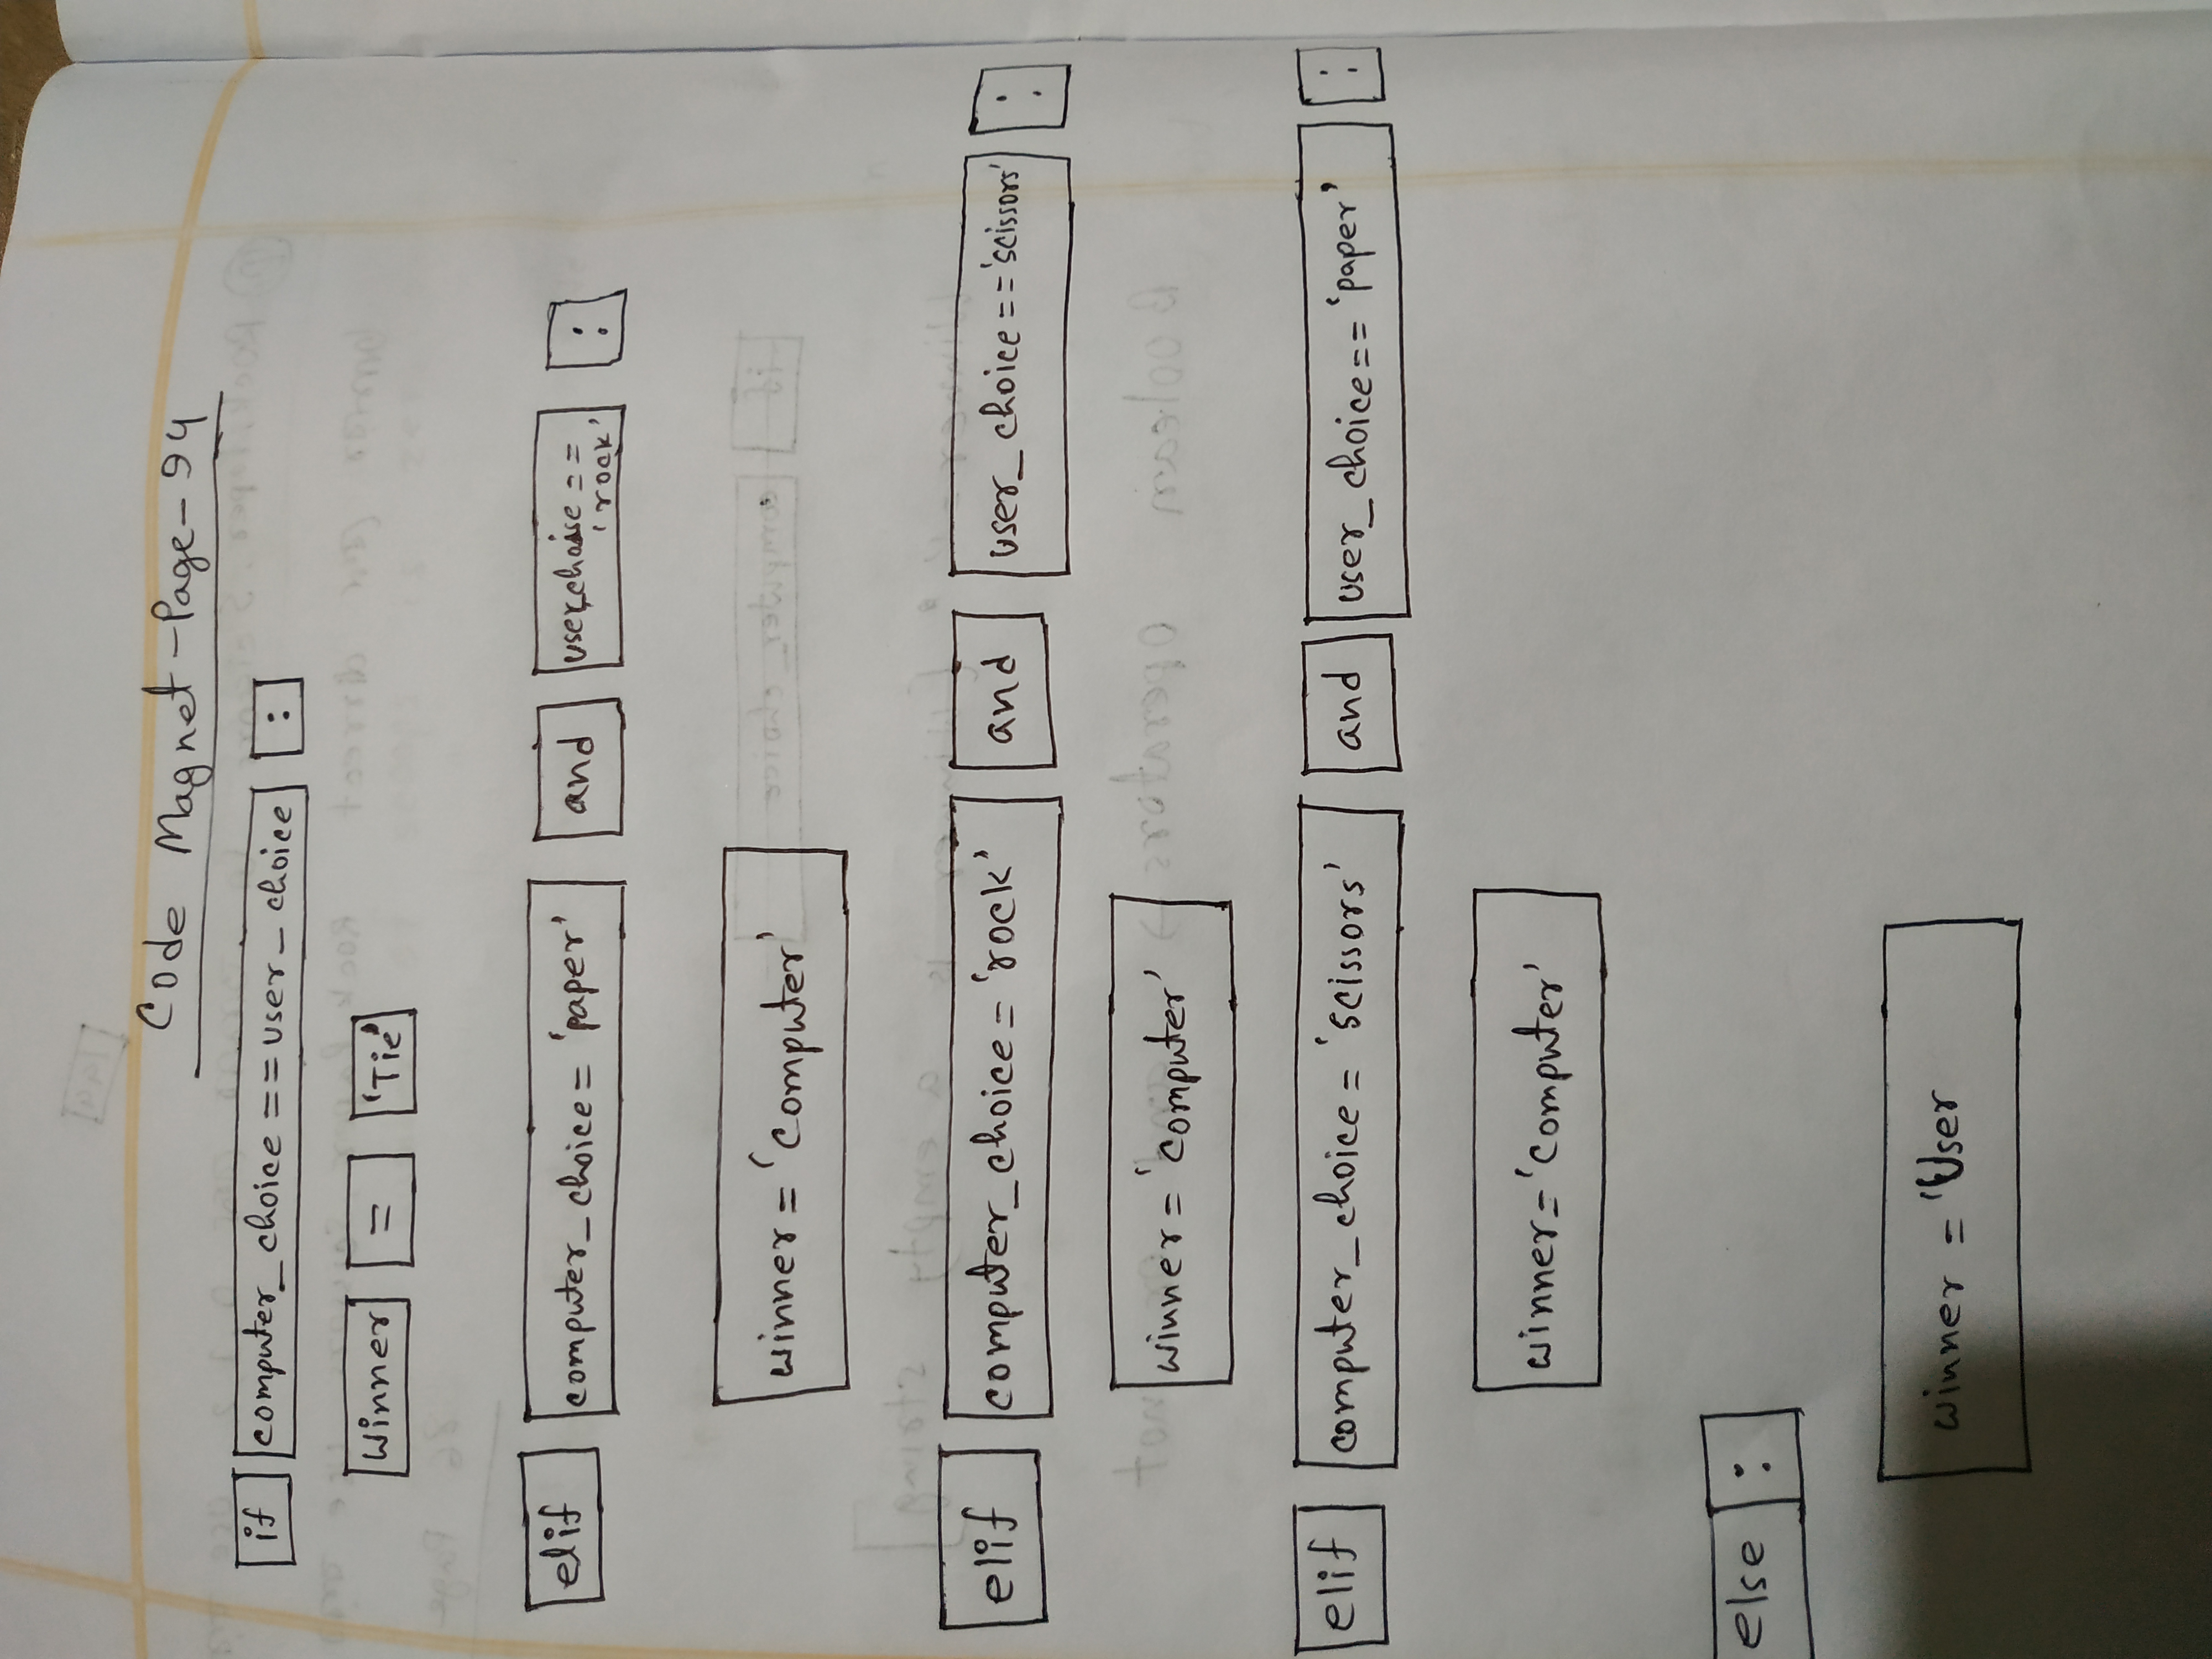 Code Magnet-Page-94
if computer_choice == user_choice :
Winner = 'Tie'
elif computer_choice = 'paper' and user_choise == :
'rock'
winner = 'Computer'
elif computer_choice = 'rock' and user_choice == 'scissors' :
winner = 'computer'
elif computer_choice = 'scissors' and user_choice == 'paper' :
winner = 'Computer'
else :
winner = 'User